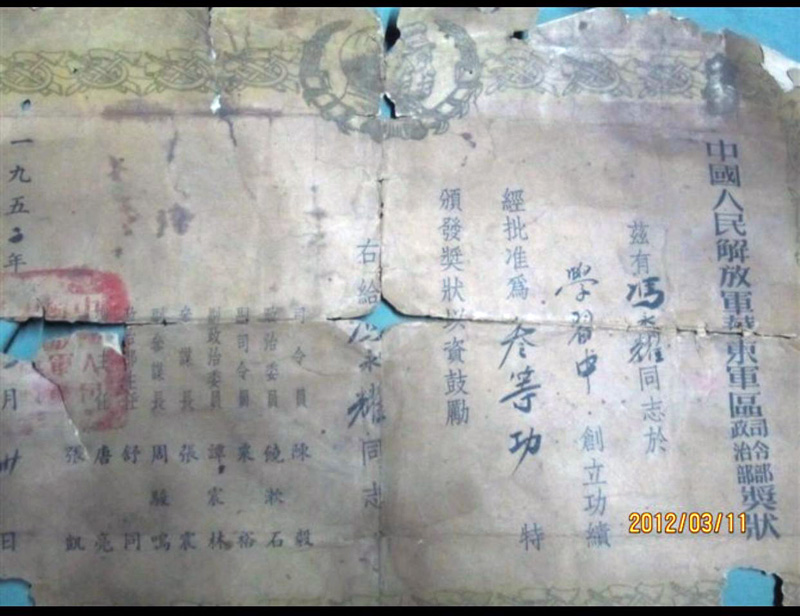 中國人民解放軍華東軍區司令部政治部獎狀
兹有馮永耀同志於
學習中創立功績
經批准為叁等功特
頒發獎狀以資鼓勵
右給馮永耀同志
司令員陳毅
政治委員饒漱石
副司令員粟裕
副政治委員譚震林
參謀長張震
副參謀長周駿鳴
主任舒同
唐亮
張凱
一九五二年月卅日
2012/03/11